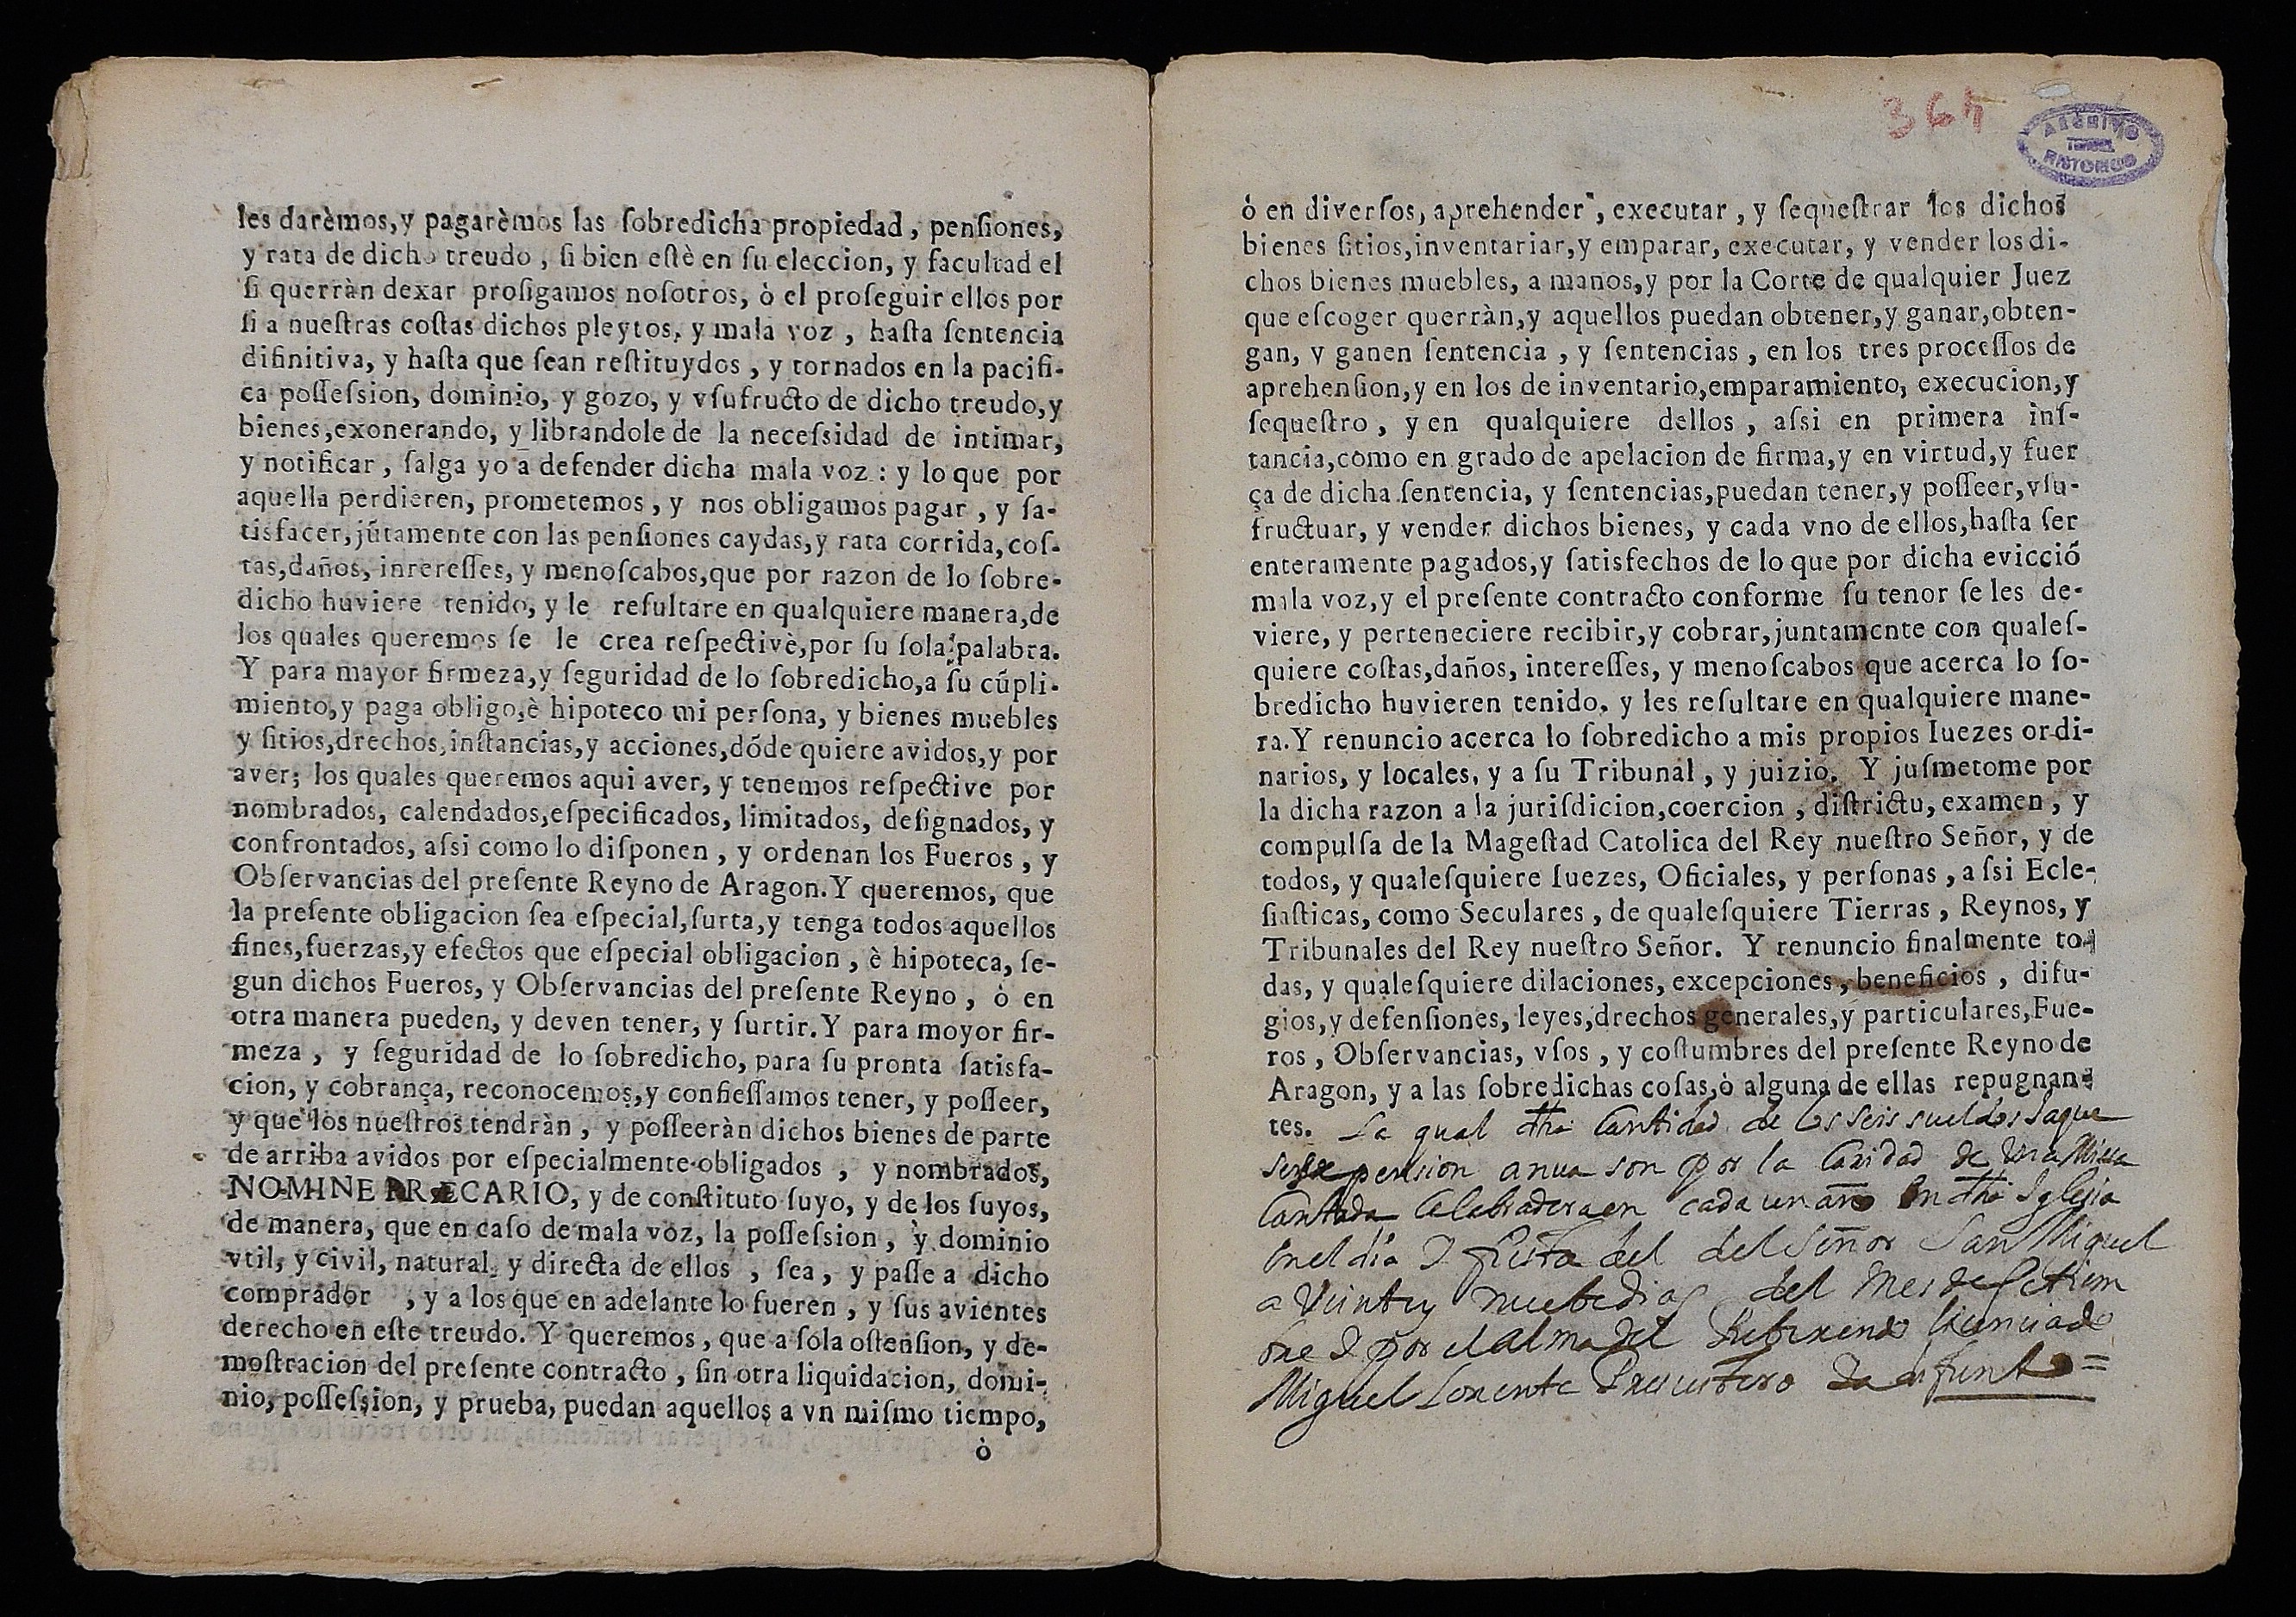 les darèmos,y pagarèmos las ſobredicha propiedad, penſiones,
y rata de dicho treudo, ſi bien eſtè en ſu eleccion, y facultad el
ſi querràn dexar proſigamos noſotros, ò el proſeguir ellos por
ſi a nueſtras coſtas dichos pleytos, y mala voz, haſta ſentencia
difinitiva, y haſta que ſean reſtituydos, y tornados en la pacifi-
ca poſſeſsion, dominio, y gozo, y vſufructo de dicho treudo,y
bienes,exonerando, y librandole de la neceſsidad de intimar,
y notificar, ſalga yo a defender dicha mala voz: y lo que por
aquella perdieren, prometemos, y nos obligamos pagar, y ſa-
tisfacer,jútamente con las penſiones caydas,y rata corrida,coſ-
tas,daños, inrereſſes, y menoſcabos,que por razon de lo ſobre-
dicho huviere tenido, y le reſultare en qualquiere manera,de
los quales queremos ſe le crea reſpectivè,por ſu ſola palabra.
Y para mayor firmeza,y ſeguridad de lo ſobredicho,a ſu cúpli-
miento,y paga obligo,è hipoteco mi perſona, y bienes muebles
y ſitios,drechos,inſtancias,y acciones,dóde quiere avidos,y por
aver; los quales queremos aqui aver, y tenemos reſpective por
nombrados, calendados,eſpecificados, limitados, deſignados, y
confrontados, aſsi como lo diſponen, y ordenan los Fueros, y
Obſervancias del preſente Reyno de Aragon.Y queremos, que
la preſente obligacion ſea eſpecial,ſurta,y tenga todos aquellos
fines,fuerzas,y efectos que eſpecial obligacion, è hipoteca, ſe-
gun dichos Fueros, y Obſervancias del preſente Reyno, ò en
otra manera pueden, y deven tener, y ſurtir.Y para moyor fir-
meza, y ſeguridad de lo ſobredicho, para ſu pronta ſatisfa-
cion, y cobrança, reconocemos,y confieſſamos tener, y poſſeer,
y que los nueſtros tendràn, y poſſeeràn dichos bienes de parte
de arriba avidos por eſpecialmente obligados, y nombrados,
NOMINE PRÆCARIO, y de conſtituto ſuyo, y de los ſuyos,
de manera, que en caſo de mala voz, la poſſeſsion, y dominio
vtil, y civil, natural, y directa de ellos, ſea, y paſſe a dicho
comprador , y a los que en adelante lo fueren, y ſus avientes
derecho en eſte treudo. Y queremos, que a ſola oſtenſion, y de-
moſtracion del preſente contracto, ſin otra liquidacion, domi-
nio, poſſeſsion, y prueba, puedan aquellos a vn miſmo tiempo,
ò
364
ARCHIVO
ANTONIUO
ò en diverſos, aprehender, executar, y ſequeſtrar los dichos
bienes ſitios,inventariar,y emparar, executar, y vender los di-
chos bienes muebles, a manos,y por la Corte de qualquier Juez
que eſcoger querràn,y aquellos puedan obtener,y ganar,obten-
gan, y ganen ſentencia, y ſentencias, en los tres proceſſos de
aprehenſion,y en los de inventario,emparamiento, execucion,y
ſequeſtro, y en qualquiere dellos, aſsi en primera inſ-
tancia,como en grado de apelacion de firma,y en virtud,y fuer
ça de dicha ſentencia, y ſentencias,puedan tener,y poſſeer,vſu-
fructuar, y vender dichos bienes, y cada vno de ellos,haſta ſer
enteramente pagados,y ſatisfechos de lo que por dicha evicció
mala voz,y el preſente contracto conforme ſu tenor ſe les de-
viere, y perteneciere recibir,y cobrar,juntamente con qualeſ-
quiere coſtas,daños, intereſſes, y menoſcabos que acerca lo ſo-
bredicho huvieren tenido, y les reſultare en qualquiere mane-
ra.Y renuncio acerca lo ſobredicho a mis propios Iuezes ordi-
narios, y locales, y a ſu Tribunal, y juizio. Y juſmetome por
la dicha razon a la juriſdicion,coercion, diſtrictu, examen, y
compulſa de la Mageſtad Catolica del Rey nueſtro Señor, y de
todos, y qualeſquiere Iuezes, Oficiales, y perſonas, aſsi Ecle-
ſiaſticas, como Seculares, de qualeſquiere Tierras, Reynos, y
Tribunales del Rey nueſtro Señor. Y renuncio finalmente to-
das, y qualeſquiere dilaciones, excepciones, beneficios, difu-
gios,y defenſiones, leyes,drechos generales,y particulares,Fue-
ros, Obſervancias, vſos, y coſtumbres del preſente Reyno de
Aragon, y a las ſobredichas coſas,ò alguna de ellas repugnan-
tes. La qual dha Cantidad de los seis sueldos Jaque
ses de pension anua son por la Caridad de una Missa
Cantada Celebradera en cada un año En dha Iglesia
en el dia I fiesta del del Señor San Miguel
a Veinte y nuebe dias del mes de Setiem
bre I por el Alma del Reberendo Licenciado
Miguel Lorente Presvitero difunto =